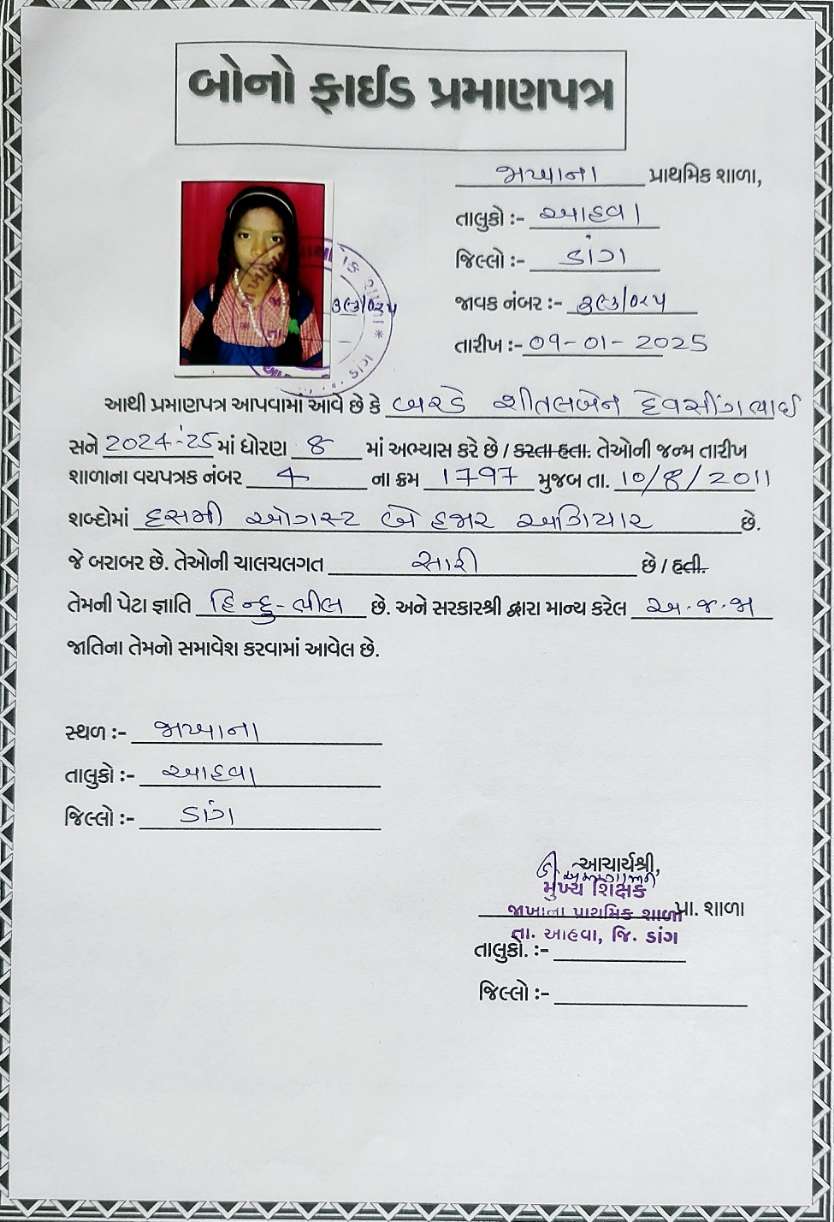 બોનો ફાઈડ પ્રમાણપત્ર
જાખાના પ્રાથમિક શાળા,
તાલુકો :- આહવા
જિલ્લો :- ડાંગ
જાવક નંબર :- ૩૯૩/૦૨૫
તારીખ :- 09-01-2025
૩૯૩/૦૨૫
આથી પ્રમાણપત્ર આપવામાં આવે છે કે બરડે શીતલબેન દેવસીંગભાઈ
સને 2024-'25 માં ધોરણ 8 માં અભ્યાસ કરે છે / કરતા હતા. તેઓની જન્મ તારીખ
શાળાના વયપત્રક નંબર 4 ના ક્રમ 1797 મુજબ તા. 10/8/2011
શબ્દોમાં દસમી ઓગસ્ટ બે હજાર અગિયાર છે.
જે બરાબર છે. તેઓની ચાલચલગત સારી છે / હતી.
તેમની પેટા જ્ઞાતિ હિન્દુ-ભીલ છે. અને સરકારશ્રી દ્વારા માન્ય કરેલ અ.જ.જા
જાતિના તેમનો સમાવેશ કરવામાં આવેલ છે.
સ્થળ :- જાખાના
તાલુકો :- આહવા
જિલ્લો :- ડાંગ
આચાર્યશ્રી,
મુખ્ય શિક્ષક
જાખાના પ્રાથમિક શાળા પ્રા. શાળા
તા. આહવા, જિ. ડાંગ
તાલુકો. :-
જિલ્લો :-